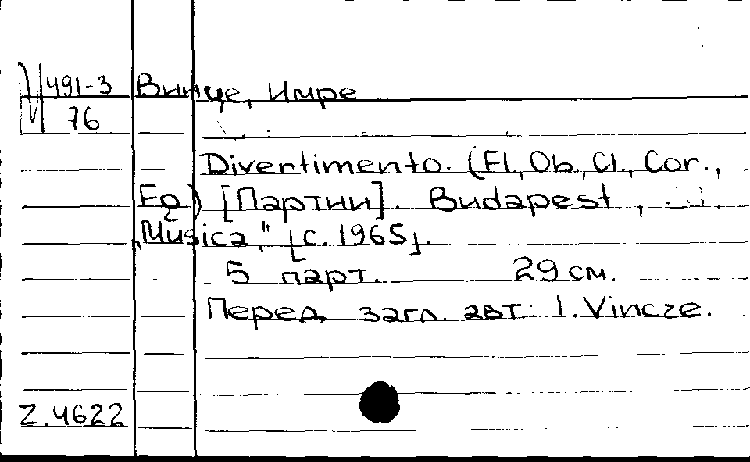 И 491-3 Винце, Импе
76
Divertimento. (Fl., Ob., Cl., Cor.,
Fg) [Партии]. Budapest,
„Musica," [c. 1965].
5 парт. 29 см.
Перед загл. авт: I. Vincze.
Z.4622